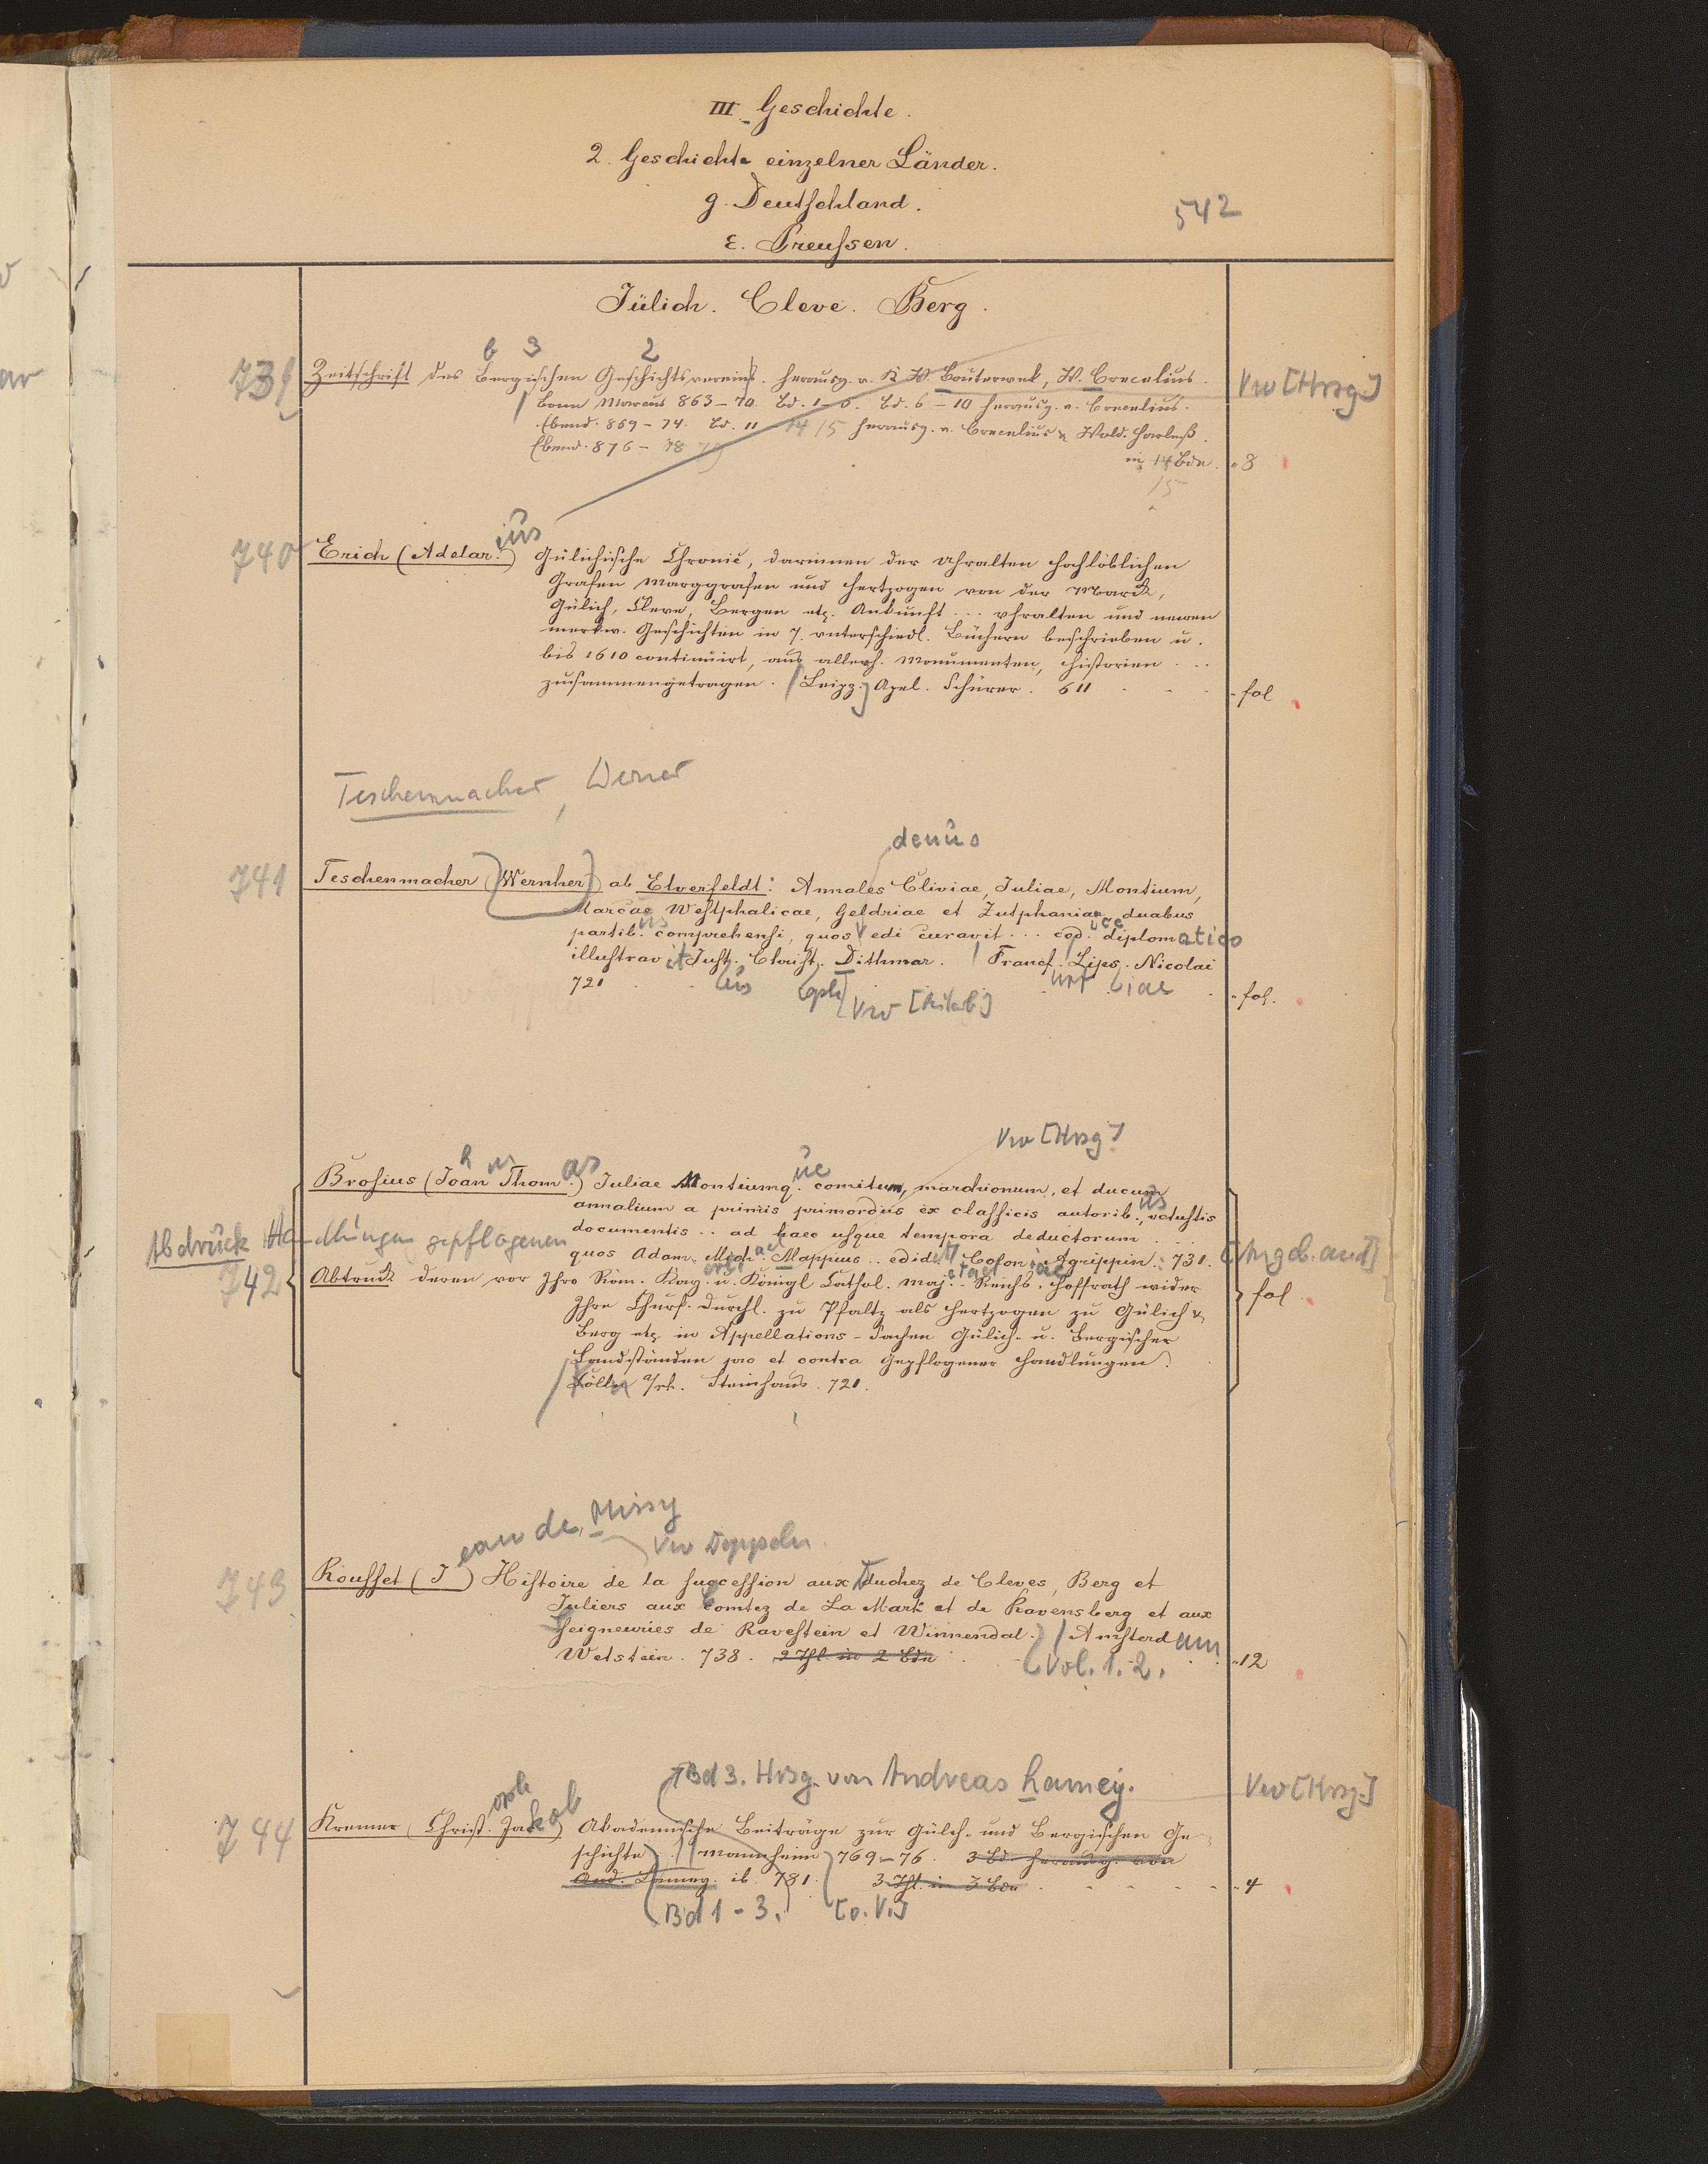 III Geschichte.
2. Geschichte einzelner Länder.
g. Deutschland.
542
ε. Preussen.
Jülich. Cleve. Berg.
b 3 2
739 Zeitschrift des Bergischen Geschichtsvereins. herausg. v. K. W. Bouterwek, W. Crecelius. Vw [Hrsg.]
Bonn Marcus 863–70. Bd. 1–6. Bd. 6–10 herausg. v. Crecelius.
Ebend. 869–74. Bd. 11–14 15 herausg. v. Crecelius u. Wold. Harleß.
Ebend. 876–78 79 in 14 Bdn. 8
15
ius
740 Erich (Adelar.) Gülichische Chronic, darinnen der uhralten hochlöblichen
Grafen Marggrafen und Hertzogen von der Marck,
Gülich, Cleve, Bergen etc. Ankunft ... uhralten und newen
merkw. Geschichten in 7. unterschiedl. Büchern beschrieben u.
bis 1610 continuirt, aus allerh. Monumenten, Historien ...
zusammengetragen. (Leipz.) Apel. Schürer. 611 fol
Teschenmacher, Werner
denuo
741 Teschenmacher (Wernher) ab Elverfeldt: Annales Cliviae, Juliae, Montium,
Marcae Westphalicae, Geldriae et Zutphaniae duabus
partib. us comprehensi, quos edi curavit ... cod. ice diplomatico
illustravit Just. Christ. Dithmar. Francf. Lips. Nicolai
721 us oph urt iae fol.
Vw [Hrsg]
h as ue
Brosius (Joan Thom.) Juliae Montiumq. comitum, marchionum, et ducum
annalium a primis primordiis ex classicis autorib. us, vetustis
documentis .. ad haec usque tempora deductorum ...
Abdruck gepflogenen
quos Adam. Mich. ael Mappius .. edid. it Colon. iae Agrippin. 731. [Angeb. and]
742 Abtruck deren vor Ihro Röm. Kay. u. Königl Cathol. Maj. Reichs. Hoffrath wider fol
Ihre Churf. Durchl. zu Pfaltz als Hertzogen zu Gülich u.
Berg etc in Appellations-Sachen Gülich- u. Bergischer
Landständen pro et contra gepflogener Handlungen.
Cölln a/rh. Steinhaus. 721.
ean de Missy
Vw Doppeln.
743 Rousset (J) Histoire de la succession aux Duchez de Cleves, Berg et
Juliers aux Comtez de La Mark et de Ravensberg et aux
Seigneuries de Ravestein et Winnendal. Amsterdam
Wetstein. 738. 2 Thl. in 2 Bdn Vol. 1. 2. 12
Bd 3. Hrsg. von Andreas Lamey. Vw [Hrsg.]
oph
744 Kremer (Christ. Jakob) Akademische Beiträge zur Gülch- und Bergischen Ge-
schichte. Mannheim 769–76. 3 Bd. herausg. von
And. Lamey. ib. 781. 3 Thl. in 3 Bdn 4
Bd 1–3. [o. V.]